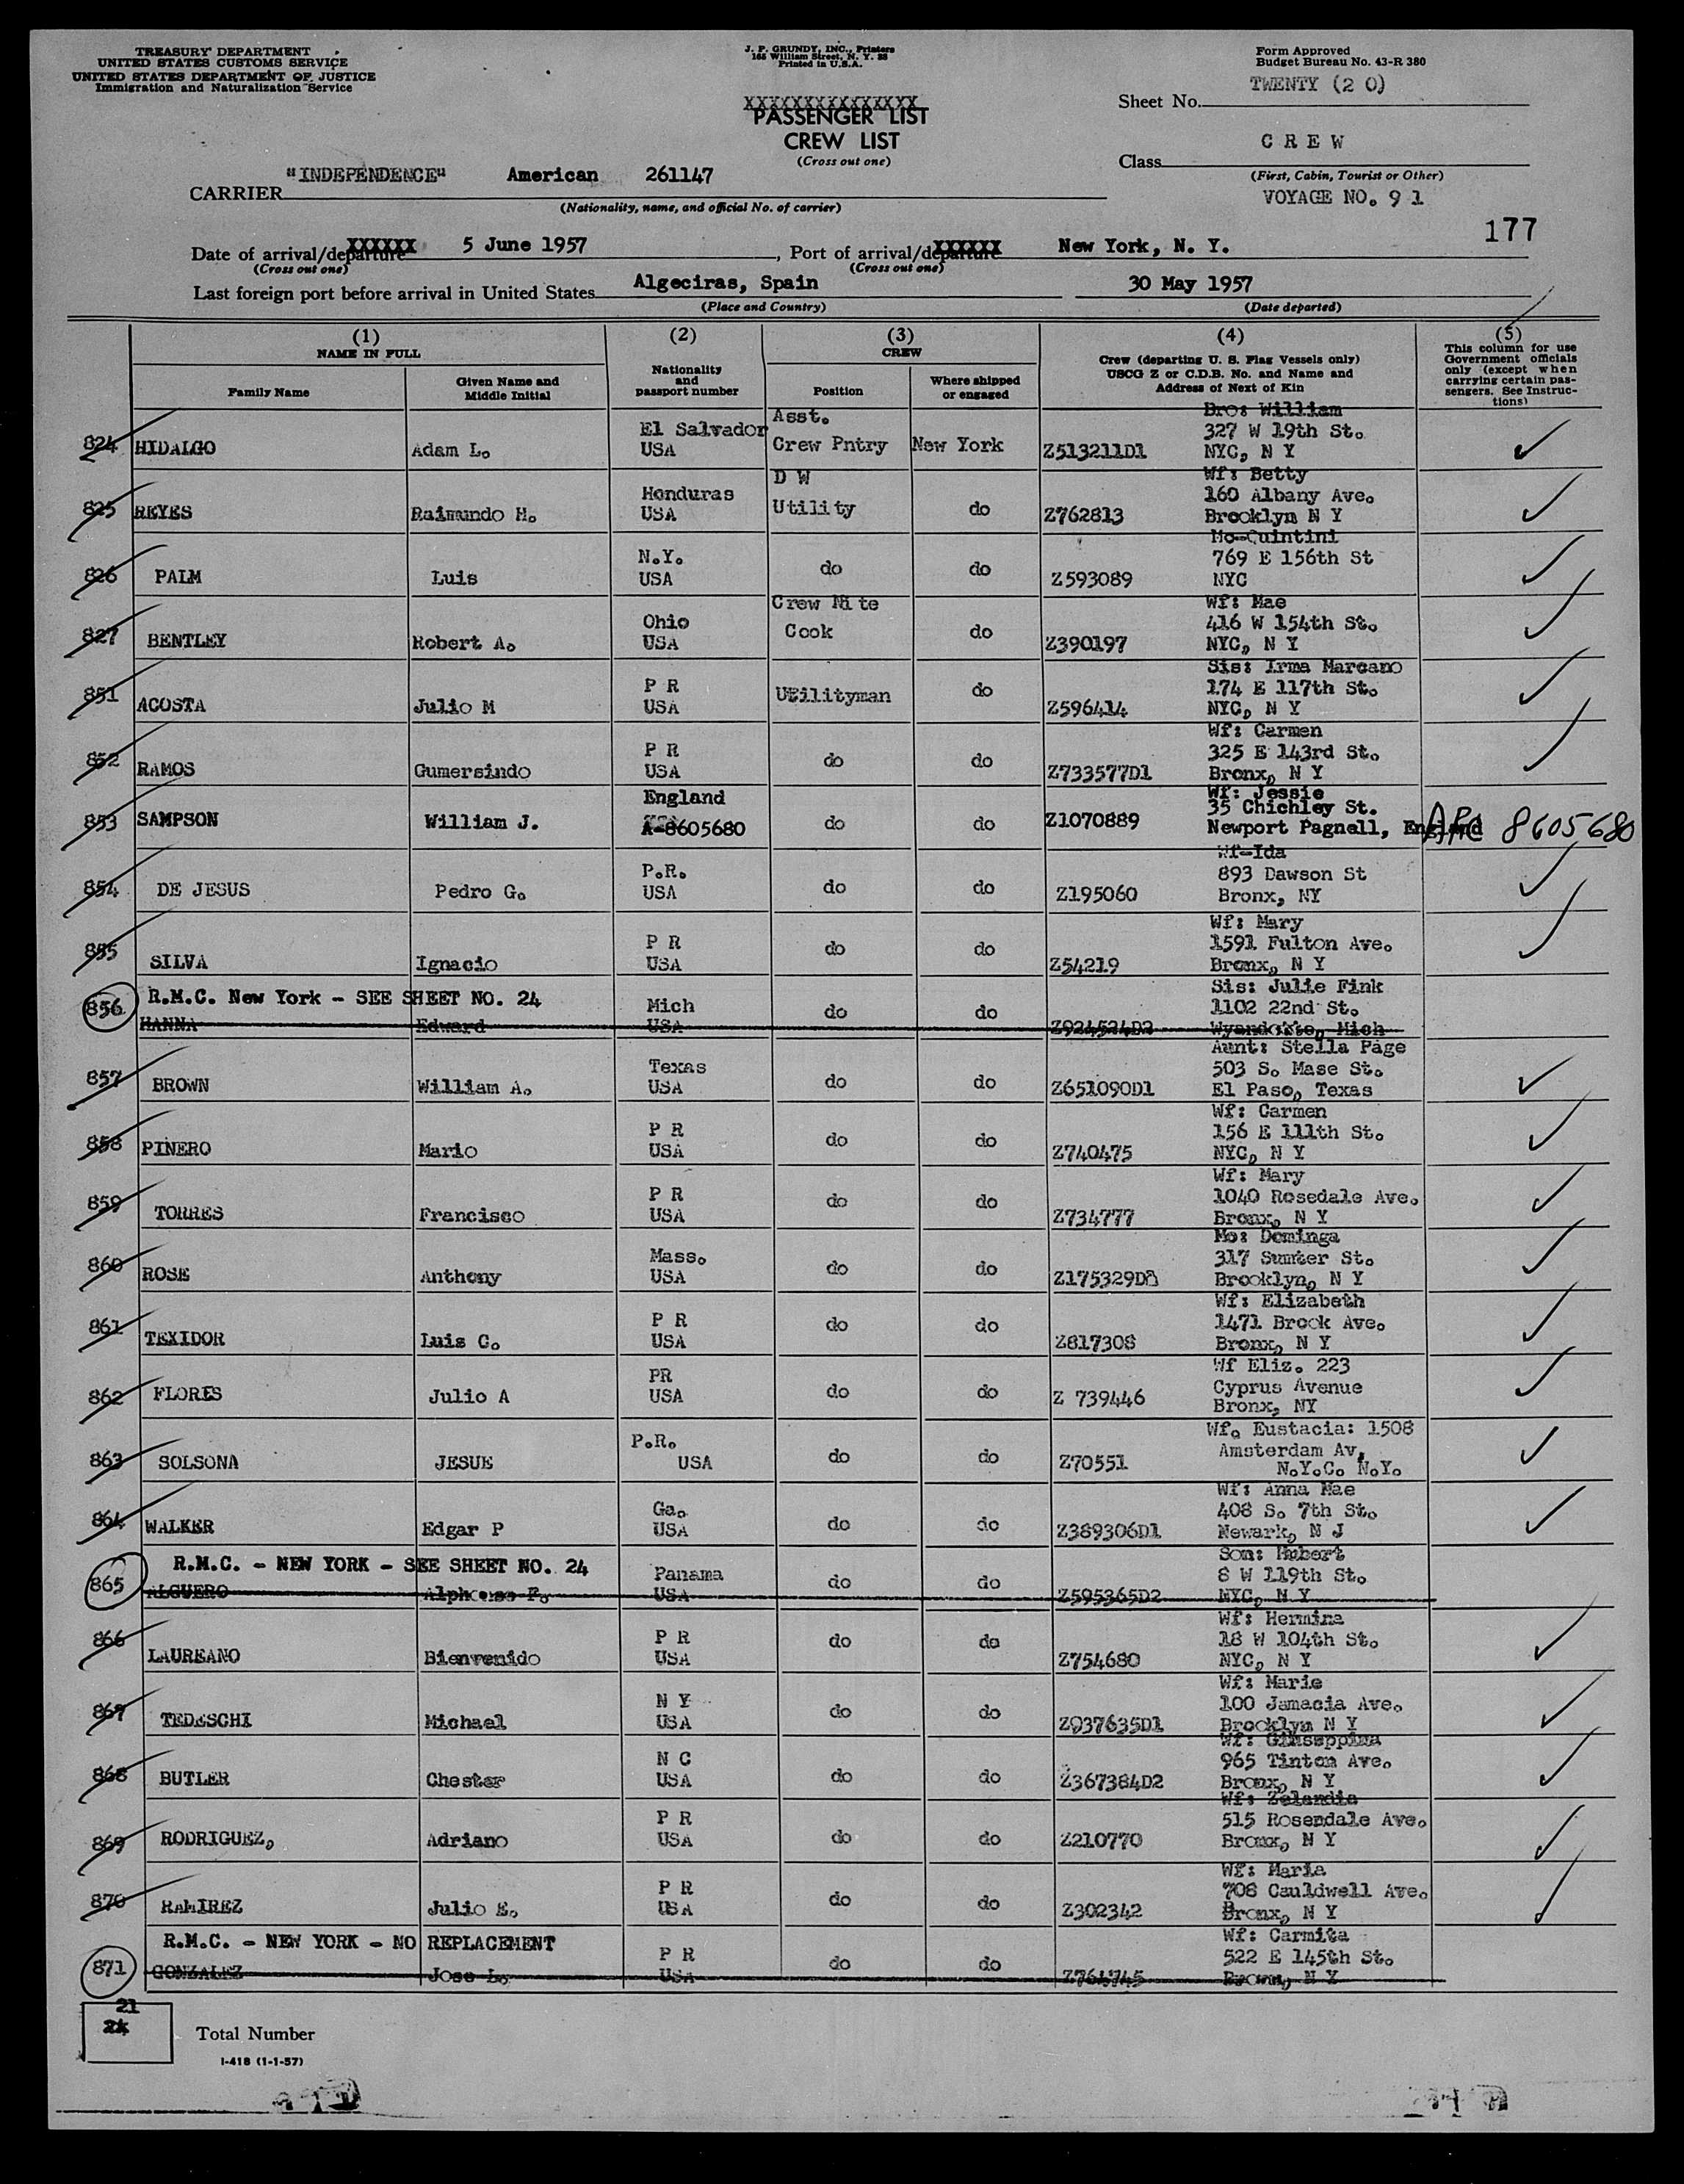 TREASURY DEPARTMENT
UNITED STATES CUSTOMS SERVICE
UNITED STATES DEPARTMENT OF JUSTICE
Immigration and Naturalization Service
J. P. GRUNDY, INC., Printers
165 William Street, N. Y. 38
Printed in U.S.A.
Form Approved
Budget Bureau No. 43-R 380
XXXXXXXXXXXXXXX
PASSENGER LIST
CREW LIST
(Cross out one)
Sheet No. TWENTY (2 0)
Class C R E W
(First, Cabin, Tourist or Other)
VOYAGE NO. 9 1
CARRIER "INDEPENDENCE" American 261147
(Nationality, name, and official No. of carrier)
177
Date of arrival/departure XXXXXX 5 June 1957, Port of arrival/departure XXXXXX New York, N. Y.
(Cross out one) (Cross out one)
Last foreign port before arrival in United States Algeciras, Spain 30 May 1957
(Place and Country) (Date departed)
(1) (2) (3) (4) (5)
NAME IN FULL
Family Name
Given Name and Middle Initial
Nationality and passport number
CREW
Position
Where shipped or engaged
Crew (departing U. S. Flag Vessels only)
USCG Z or C.D.B. No. and Name and
Address of Next of Kin
This column for use
Government officials
only (except when
carrying certain pas-
sengers. See Instruc-
tions)
Asst. Bro: William
El Salvador 327 W 19th St.
824 HIDALGO Adam L. USA Crew Pntry New York Z513211D1 NYC, N Y
D W Wf: Betty
Honduras 160 Albany Ave.
825 REYES Raimundo H. USA Utility do Z762813 Brooklyn N Y
Mo-Quintini
N.Y. 769 E 156th St
826 PALM Luis USA do do Z593089 NYC
Crew Nite Wf: Mae
Ohio 416 W 154th St.
827 BENTLEY Robert A. USA Cook do Z390197 NYC, N Y
Sis: Irma Marcano
P R 174 E 117th St.
851 ACOSTA Julio M USA Utilityman do Z596414 NYC, N Y
Wf: Carmen
P R 325 E 143rd St.
852 RAMOS Gumersindo USA do do Z733577D1 Bronx, N Y
England Wf: Jessie
35 Chichley St.
853 SAMPSON William J. A-8605680 do do Z1070889 Newport Pagnell, England ARC 8605680
Wf-Ida
P.R. 893 Dawson St
854 DE JESUS Pedro G. USA do do Z195060 Bronx, NY
Wf: Mary
P R 1591 Fulton Ave.
855 SILVA Ignacio USA do do Z54219 Bronx, N Y
R.M.C. New York - SEE SHEET NO. 24 Sis: Julie Fink
Mich 1102 22nd St.
856 HANNA Edward USA do do Z924524D2 Wyandotte, Mich
Aunt: Stella Page
Texas 503 S. Mase St.
857 BROWN William A. USA do do Z651090D1 El Paso, Texas
Wf: Carmen
P R 156 E 111th St.
858 PINERO Mario USA do do Z740475 NYC, N Y
Wf: Mary
P R 1040 Rosedale Ave.
859 TORRES Francisco USA do do Z734777 Bronx, N Y
Mo: Dominga
Mass. 317 Sumter St.
860 ROSE Anthony USA do do Brooklyn, N Y
Wf: Elizabeth
P R 1471 Brook Ave.
861 TEXIDOR Luis C. USA do do Z817308 Bronx, N Y
PR Wf Eliz. 223
Cyprus Avenue
862 FLORES Julio A USA do do Z 739446 Bronx, NY
P.R. Wf. Eustacia: 1508
Amsterdam Av,
863 SOLSONA JESUE USA do do Z70551 N.Y.C. N.Y.
Wf: Anna Mae
Ga. 408 S. 7th St.
864 WALKER Edgar P USA do do Z389306D1 Newark, N J
R.M.C. - NEW YORK - SEE SHEET NO. 24 Son: Hubert
Panama 8 W 119th St.
865 ALGUERO Alphonso F. USA do do Z595365D2 NYC, N Y
Wf: Hermina
P R 18 W 104th St.
866 LAUREANO Bienvenido USA do do Z754680 NYC, N Y
Wf: Marie
N Y 100 Jamacia Ave.
867 TEDESCHI Michael USA do do Z937635D1 Brooklyn N Y
Wf: Giuseppina
N C 965 Tinton Ave.
868 BUTLER Chester USA do do Z367384D2 Bronx, N Y
Wf: Zelandia
P R 515 Rosendale Ave.
869 RODRIGUEZ, Adriano USA do do Z210770 Bronx, N Y
Wf: Maria
P R 708 Cauldwell Ave.
870 RAMIREZ Julio E. USA do do Z302342 Bronx, N Y
R.M.C. - NEW YORK - NO REPLACEMENT Wf: Carmita
P R 522 E 145th St.
871 GONZALEZ Jose L. USA do do Bronx, N Y
21
Total Number
I-418 (1-1-57)